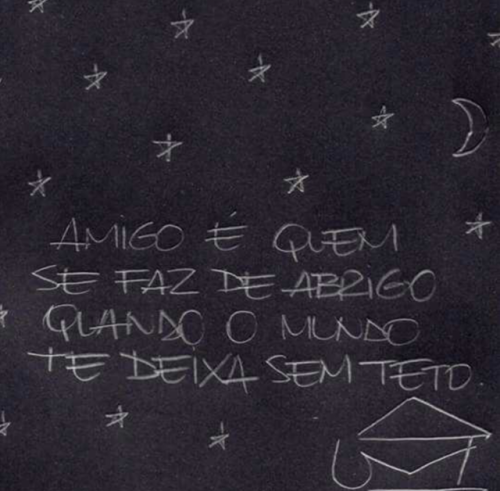 AMIGO É QUEM
SE FAZ DE ABRIGO
QUANDO O MUNDO
TE DEIXA SEM TETO.